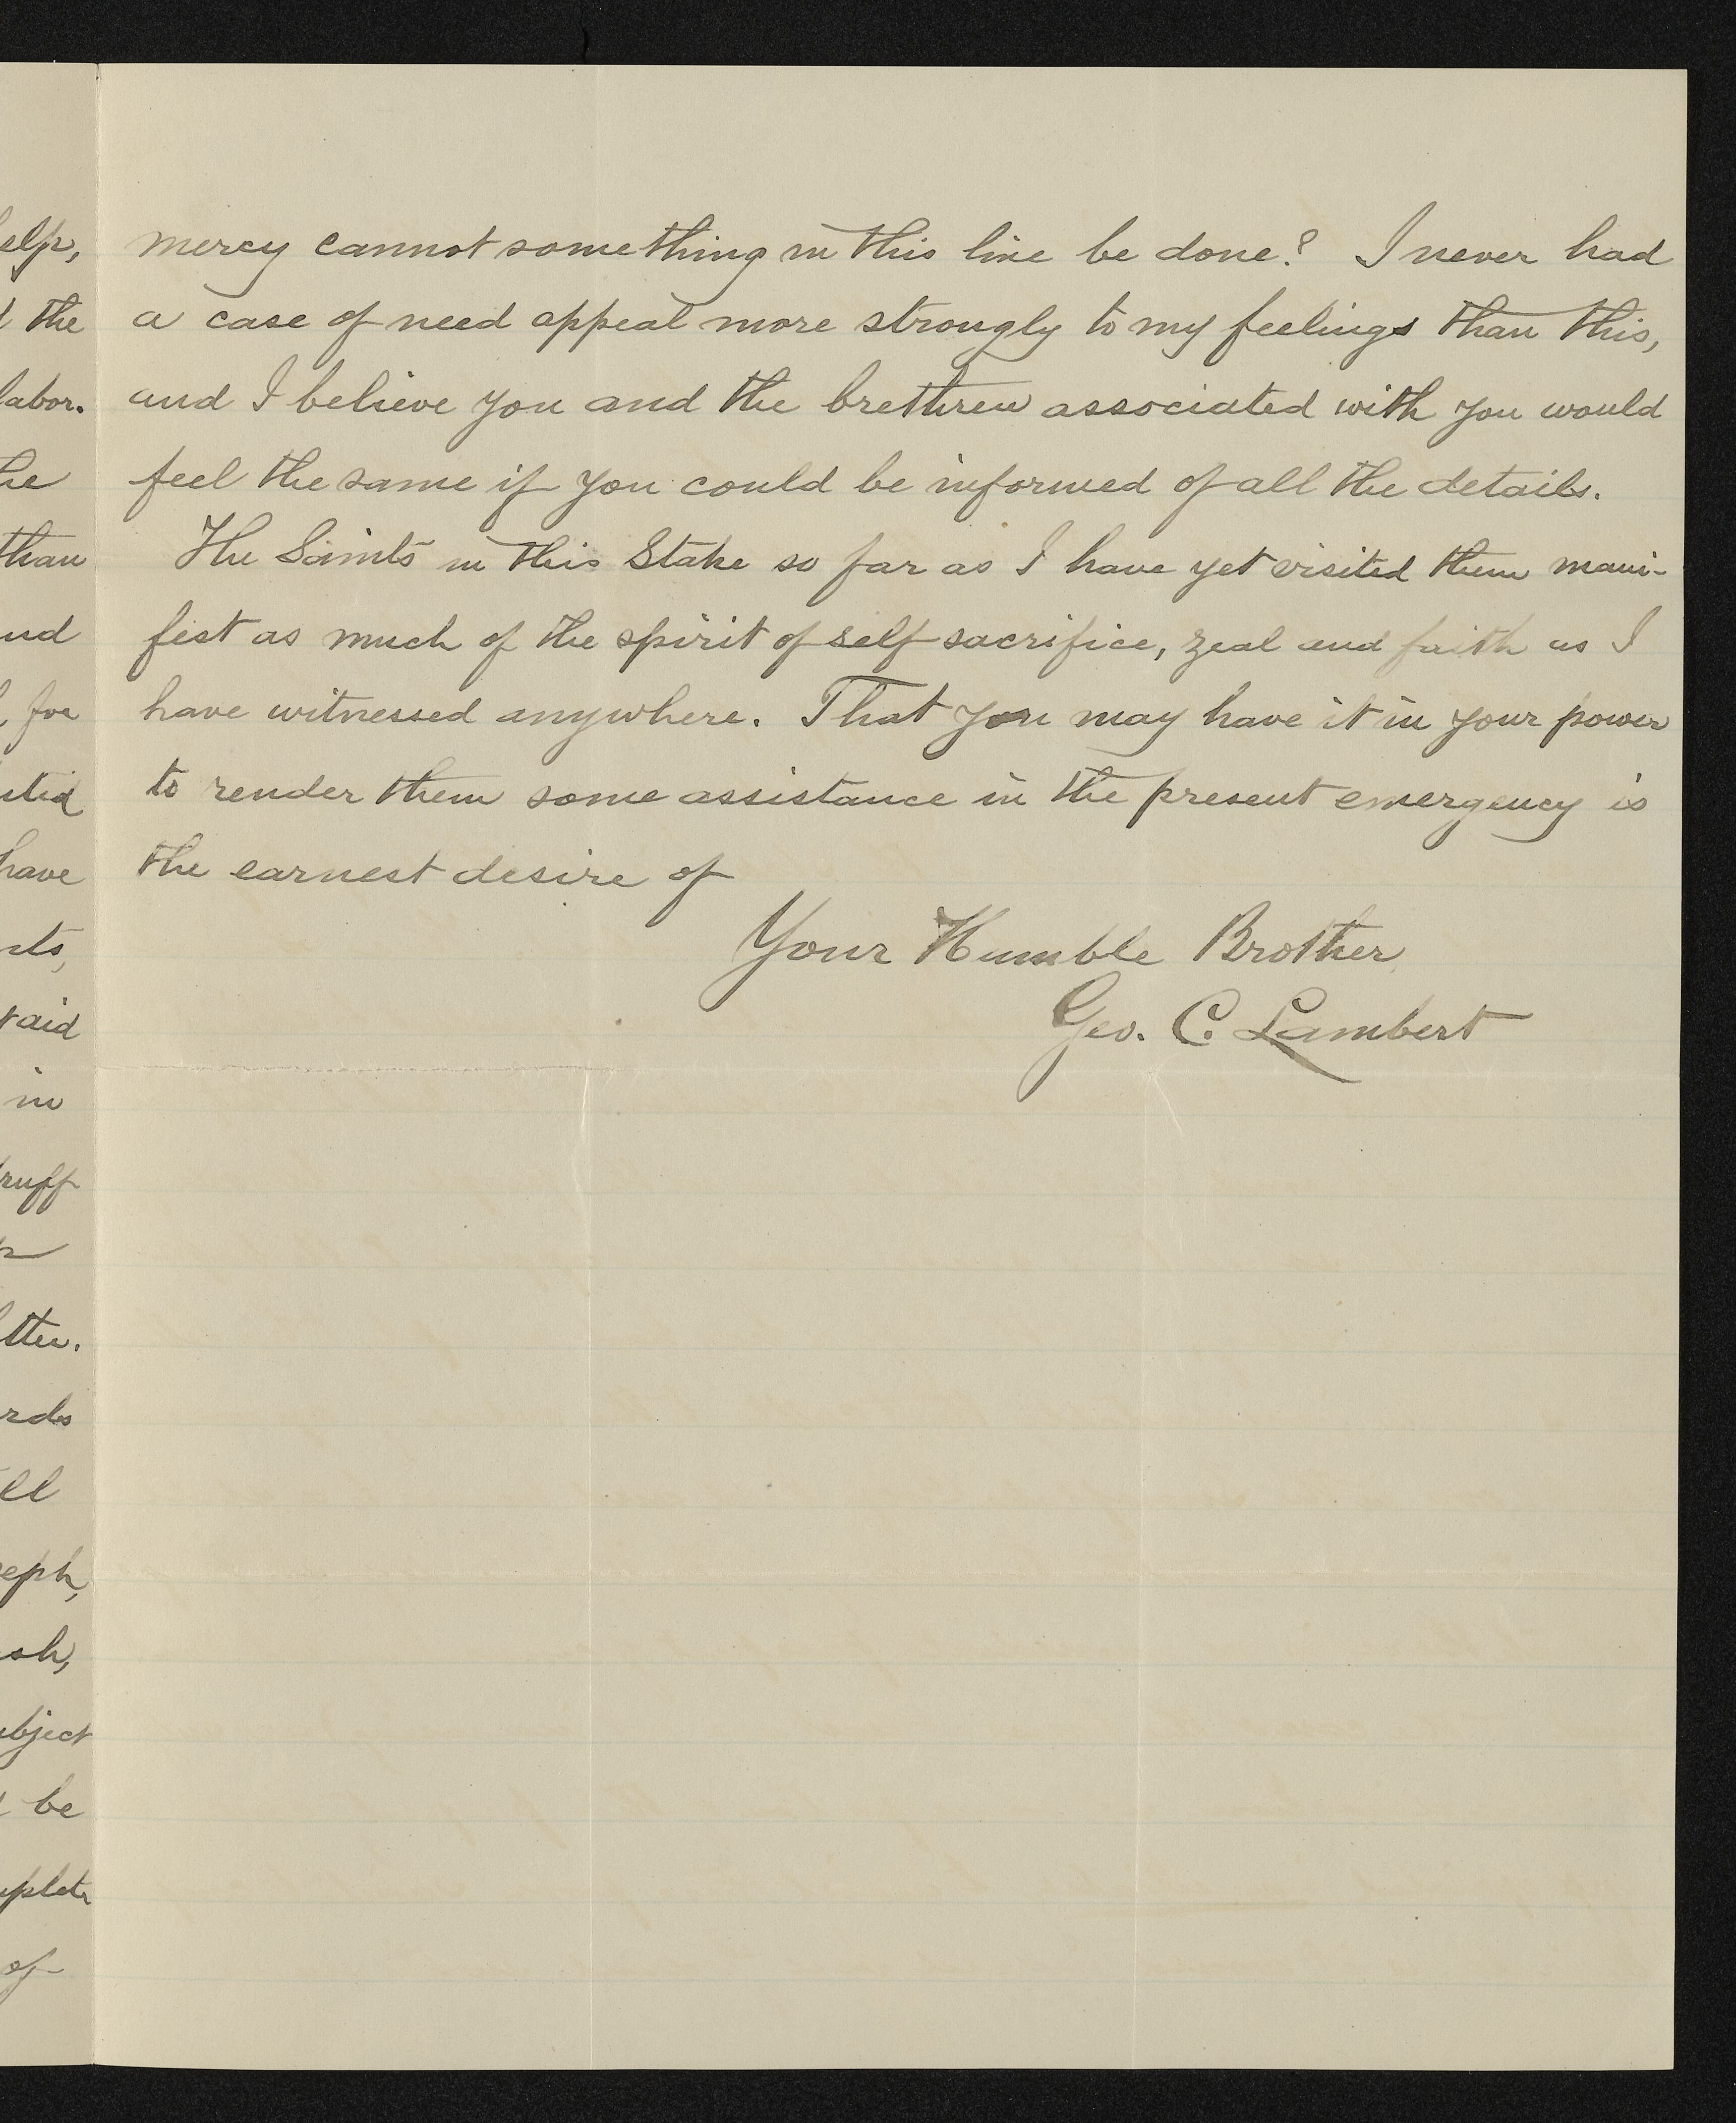 elp,
the
labor.
he
than
nd
for
have
nts,
aid
in
ruff
tter.
rds
ill
seph,
sh,
ubject
be
of
mercy cannot something in this line be done? I never had
a case of need appeal more strongly to my feelings than this,
and I believe you and the brethren associated with you would
feel the same if you could be informed of all the details.
The Saints in this Stake so far as I have yet visited them mani-
fest as much of the spirit of self-sacrifice, zeal and faith as I
have witnessed anywhere. That you may have it in your power
to render them some assistance in the present emergency is
the earnest desire of
Your Humble Brother,
Geo. C. Lambert